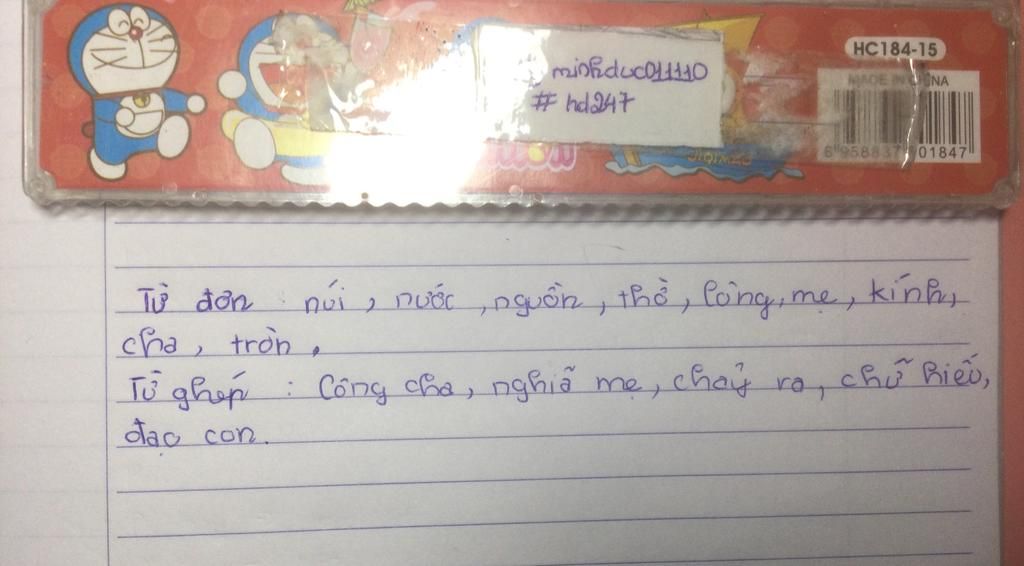 HC184-15
MADE IN CHINA
minhduc011110
# hd247
6 958837 901847
Từ đơn : núi, nước, nguồn, thờ, lòng, mẹ, kính,
cha, tròn.
Từ ghép : Công cha, nghiã mẹ, chaỷ ra, chữ hiếu,
đạo con.